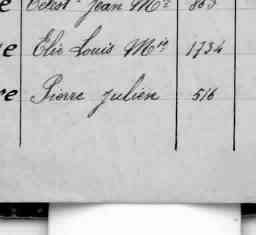 e Célest. Jean Mie 863
e Elie Louis Mie 1734
re Pierre Julien 516